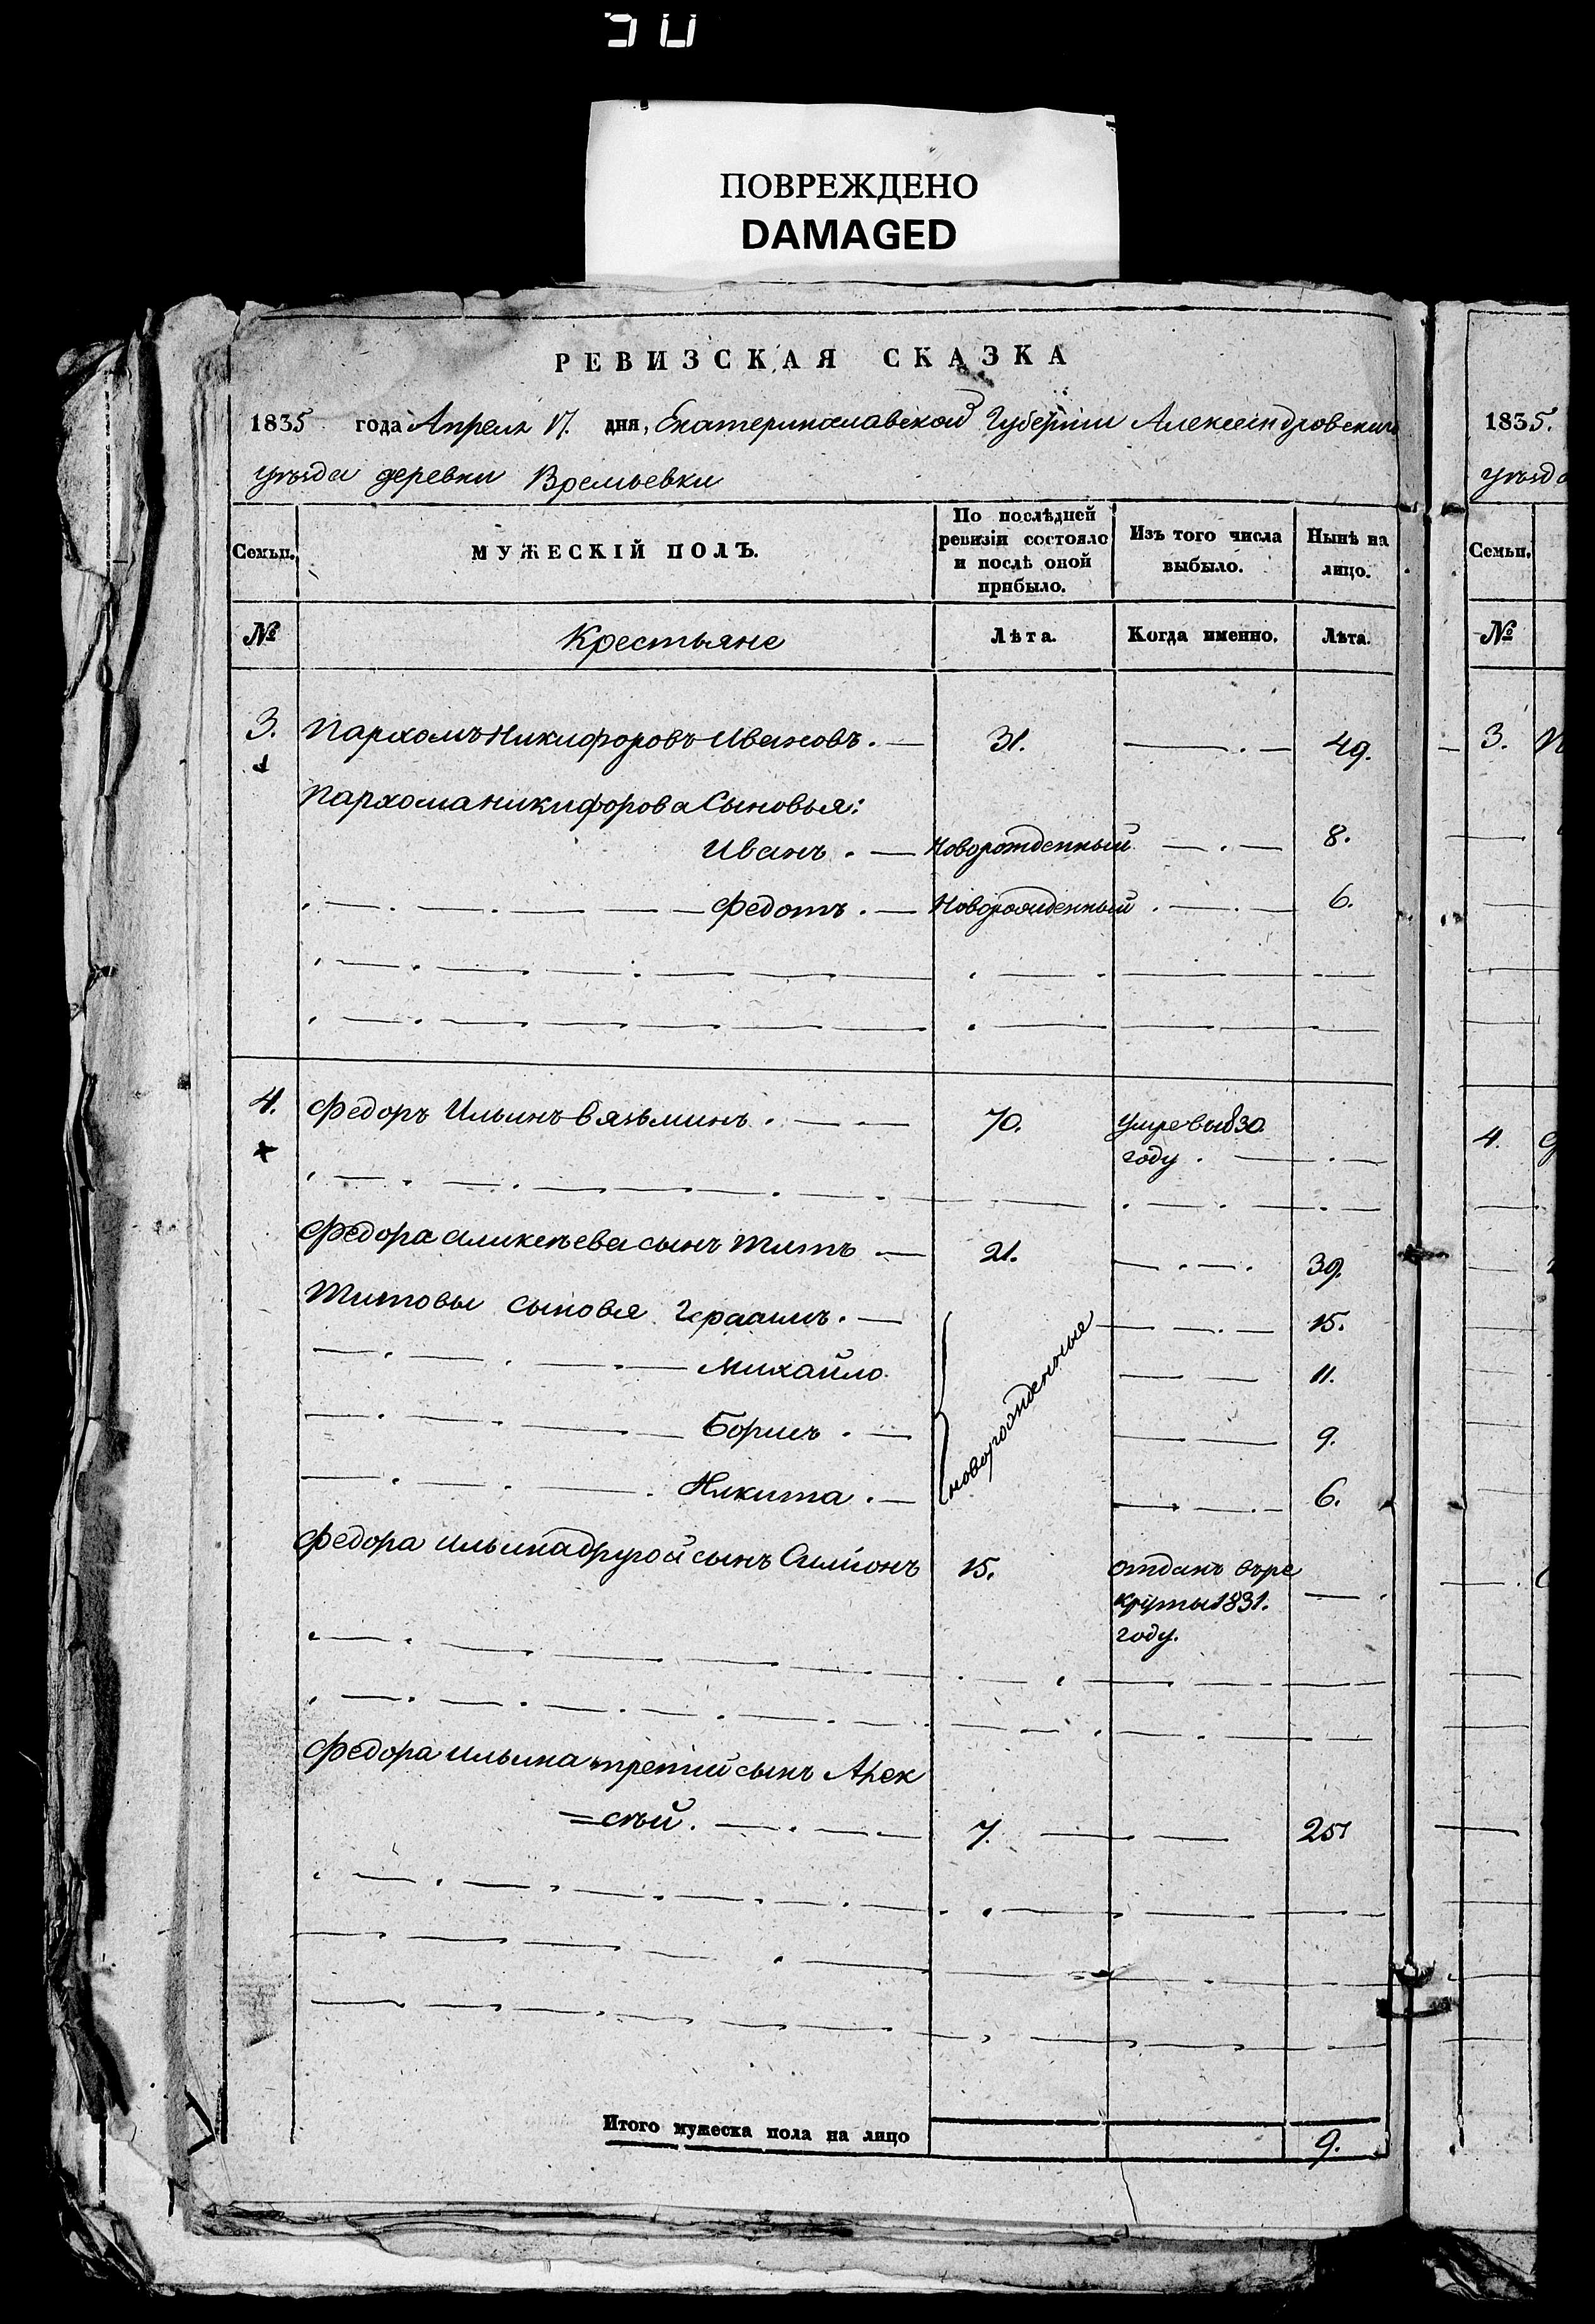 ПОВРЕЖДЕНО
DAMAGED
РЕВИЗСКАЯ СКАЗКА
1835 года Апреля 17. дня, Екатеринославской Губернии Александровскаго
уѣзда деревни Времьевки
Семьи. МУЖЕСКІЙ ПОЛЪ. По послѣдней ревизіи состояло и послѣ оной прибыло. Изъ того числа выбыло. Нынѣ на лицо.
№ Крестьяне Лѣта. Когда именно. Лѣта.
3. Пархомъ Никифоровъ Ивановъ. 31. 49.
Пархома Никифорова Сыновья:
Иванъ. Новорожденный 8.
Федотъ. Новорожденный 6.
4. Федоръ Ильинъ Вязьминъ. 70. умре
году.
Федора сынъ Титъ 21. 39.
Титовы сыновья 15.
новорожденные
Михайло 11.
Борисъ. 9.
Никита. 6.
Федора Ильина другой сынъ Симіонъ 15. отданъ врре
круты 1831.
году.
Федора Ильина третий сынъ Алек
=сѣй. 7. 25
Итого мужеска пола на лицо 9.
1835.
уѣзд
Семьи.
№
3.
4.